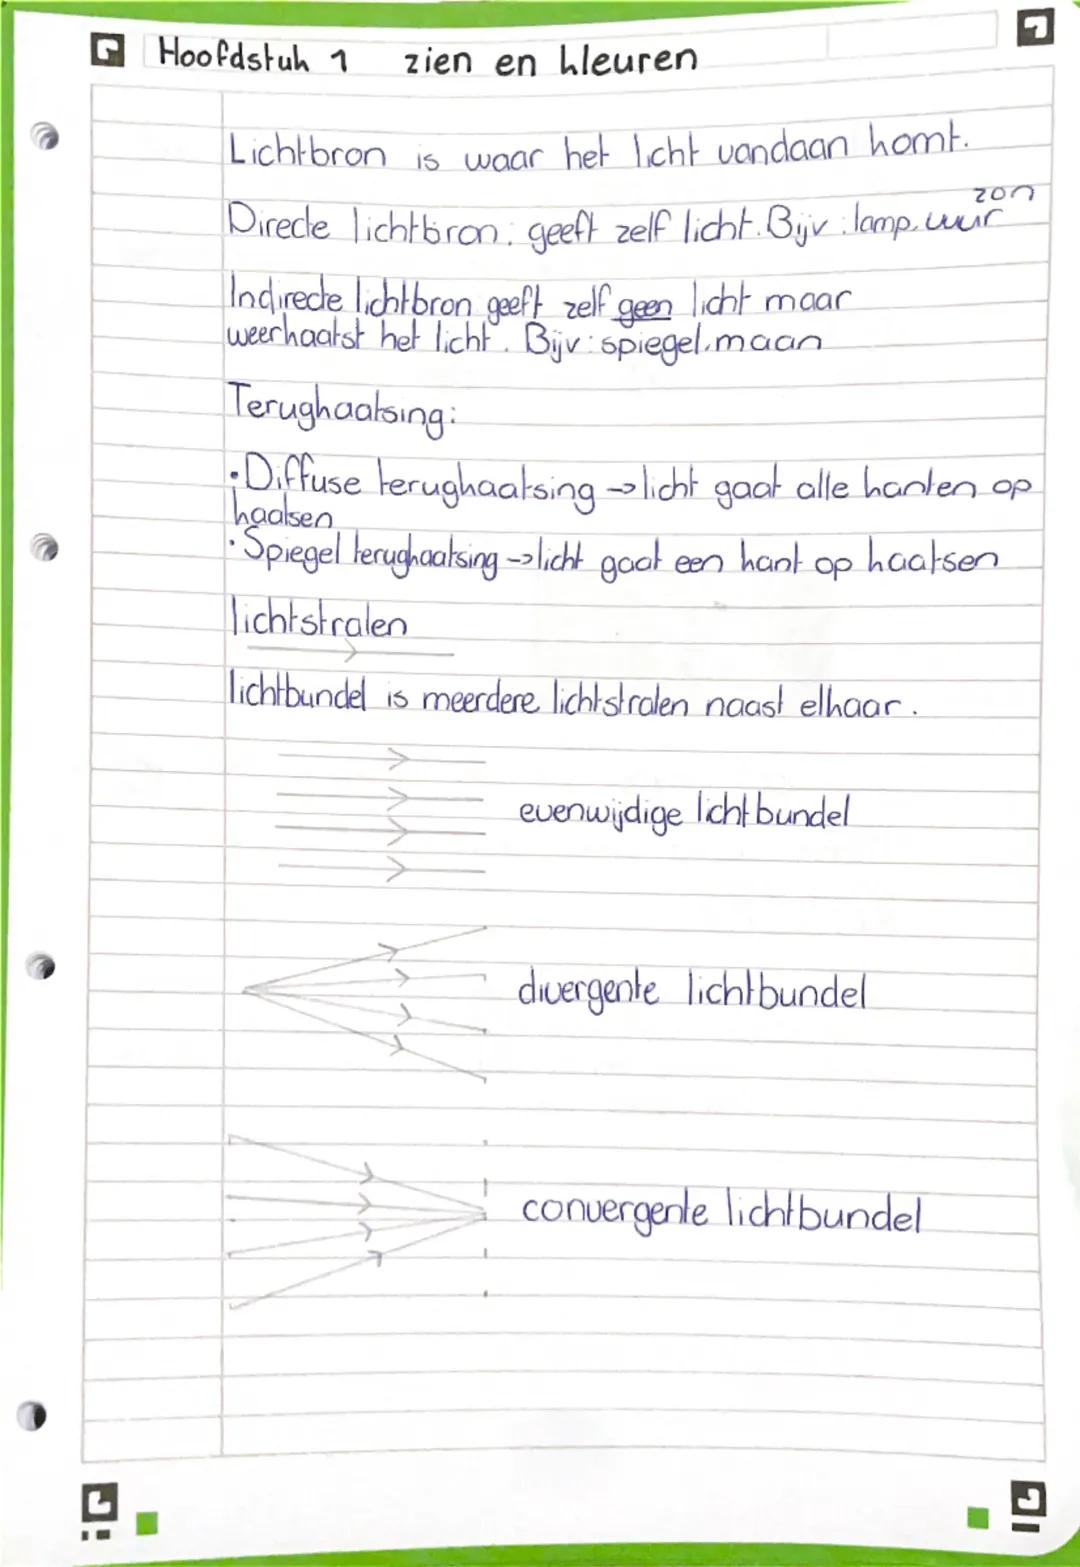 Hoofdstuk 1 zien en kleuren
Lichtbron is waar het licht vandaan komt.
zon
Directe lichtbron: geeft zelf licht. Bijv: lamp, vuur
Indirecte lichtbron geeft zelf geen licht maar
weerkaatst het licht. Bijv: spiegel, maan
Terugkaatsing:
• Diffuse terugkaatsing → licht gaat alle kanten op
kaatsen
• Spiegel terugkaatsing → licht gaat een kant op kaatsen
lichtstralen
lichtbundel is meerdere lichtstralen naast elkaar.
evenwijdige lichtbundel
divergente lichtbundel
convergente lichtbundel